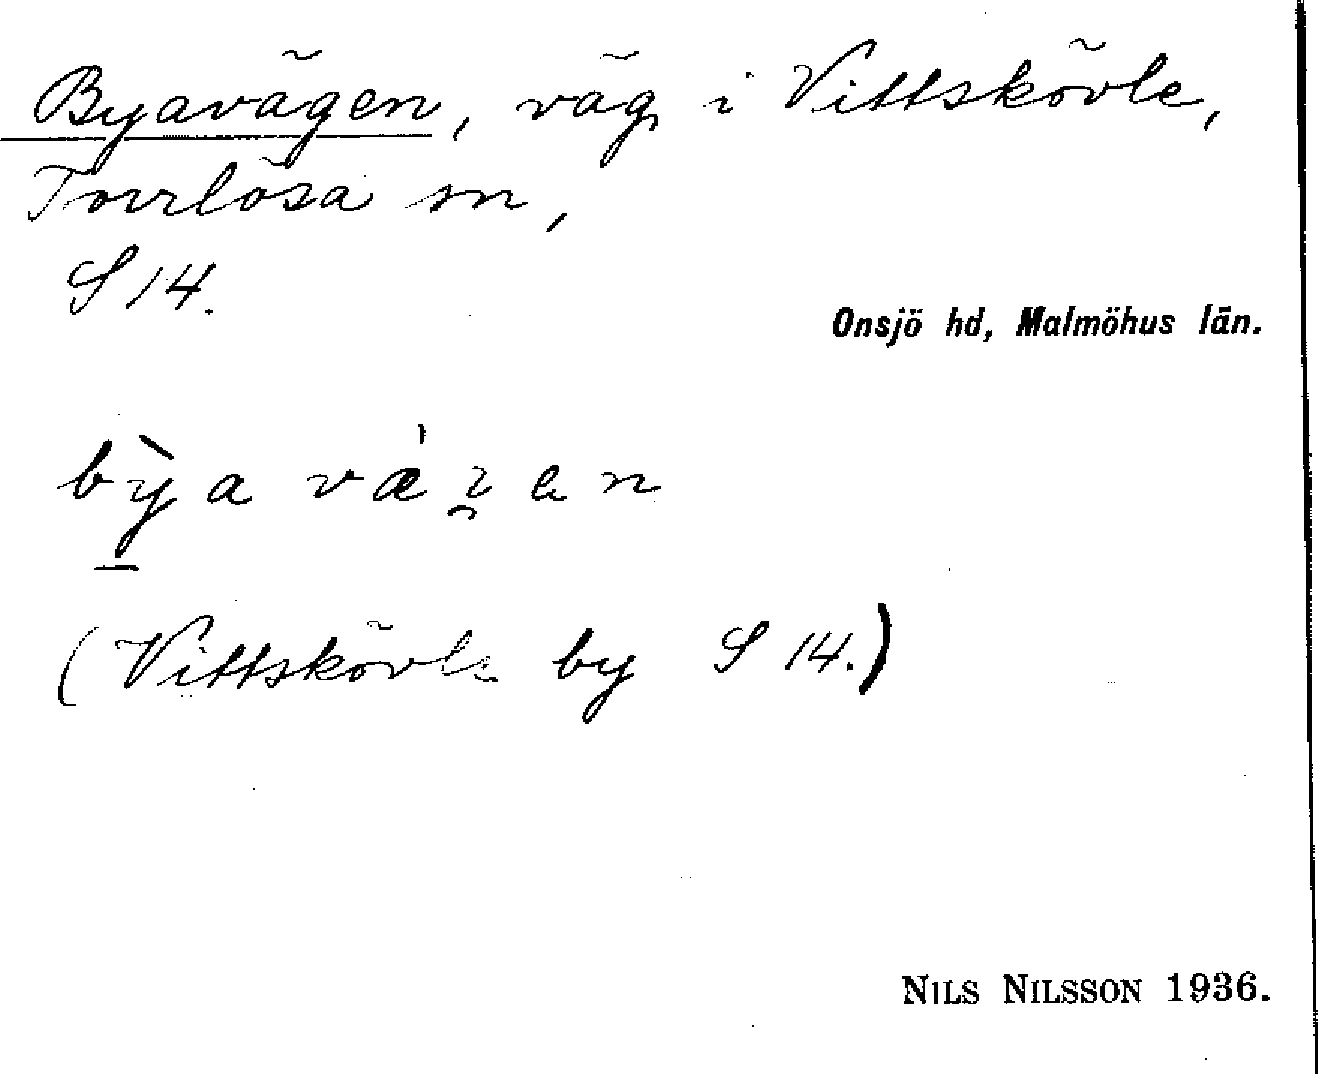 Byavägen, väg i Vittskövle,
Torrlösa sn,
S 14.
Onsjö hd, Malmöhus län.
(Vittskövle by S 14.)
NILS NILSSON 1936.